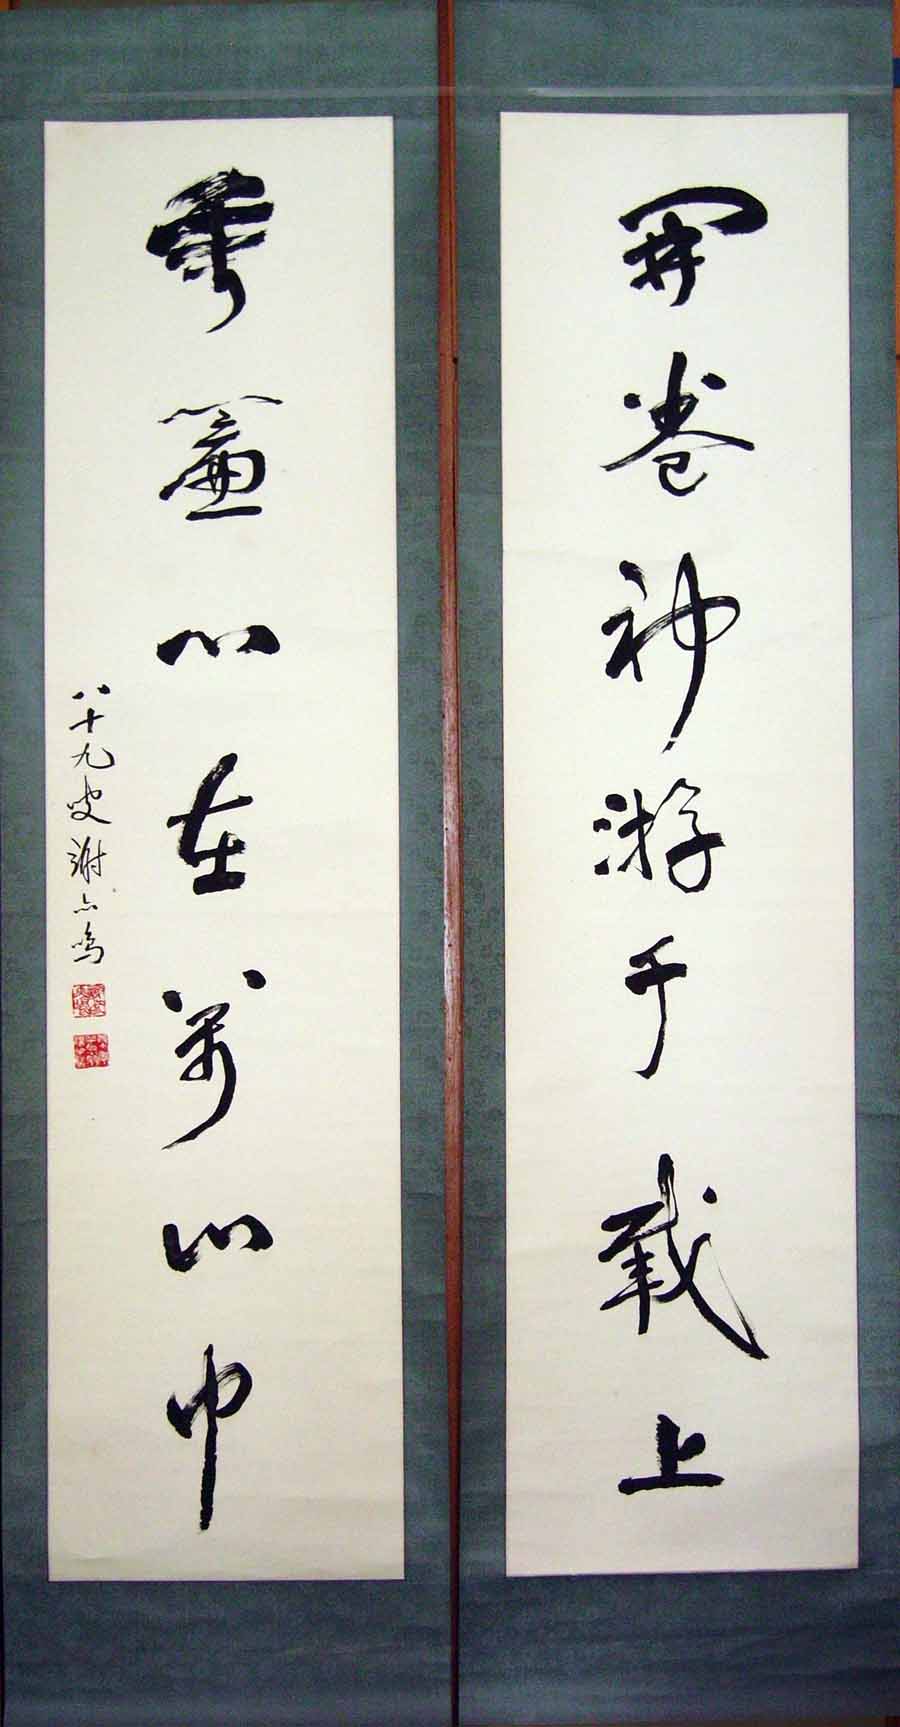 開卷神游千載上
垂簾心在萬山中
八十九叟謝立鳴